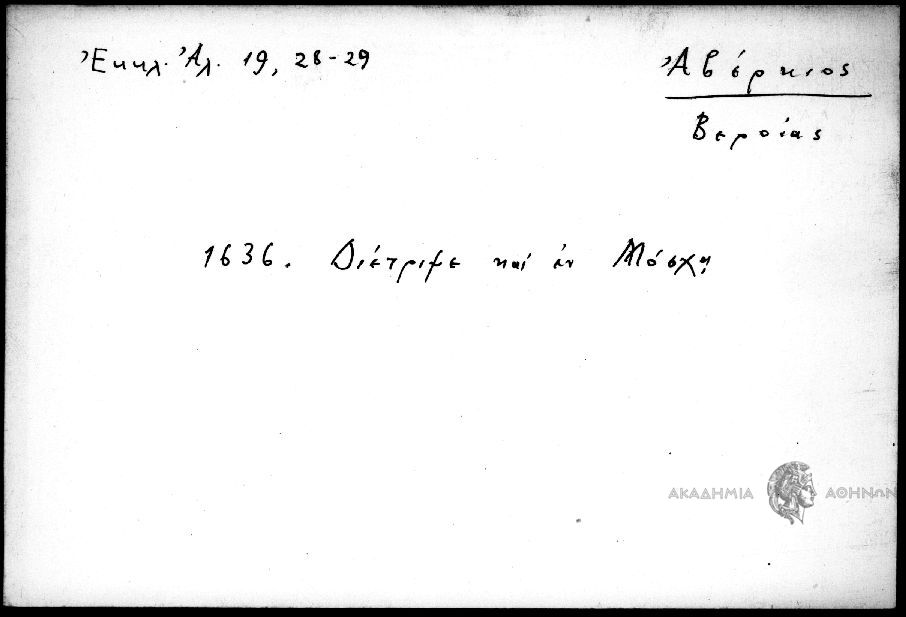 Ἐκκλ. Ἀλ. 19, 28-29
Ἀβέρκιος
Βεροίας
1636. Διέτριψε καὶ ἐν Μόσχᾳ
ΑΚΑΔΗΜΙΑ ΑΘΗΝΩΝ